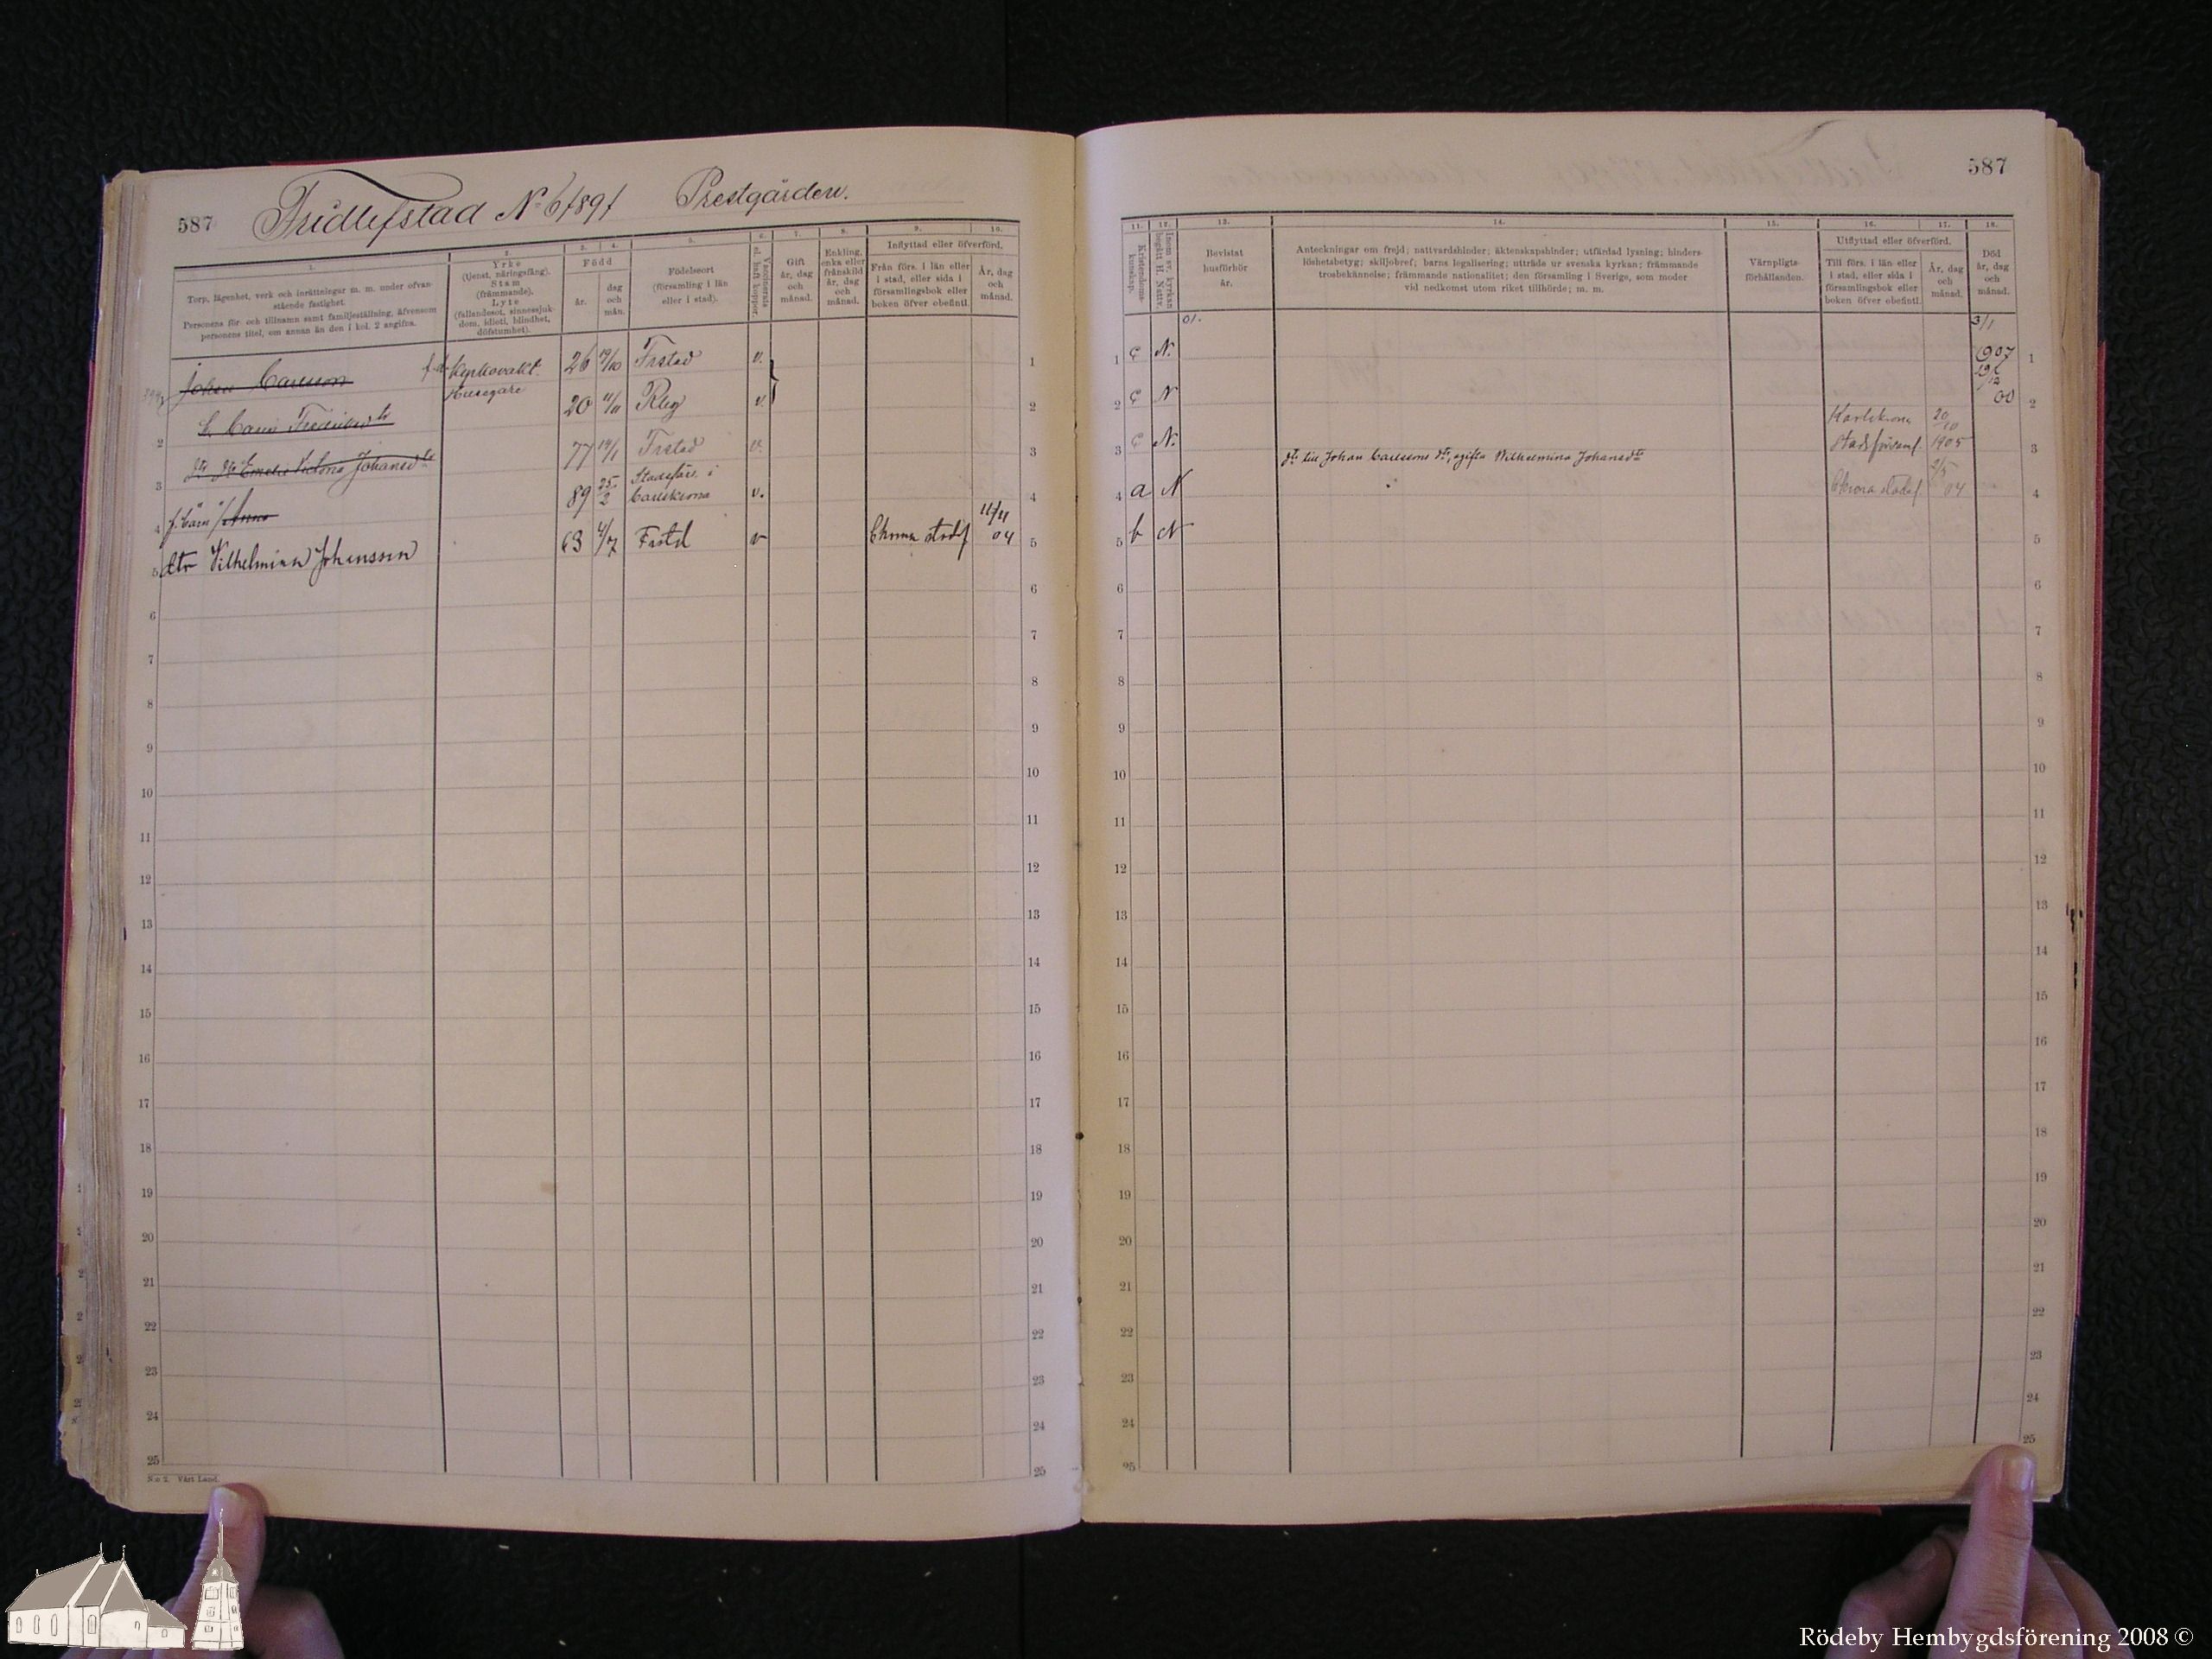 587
Fridlefstad No 6/891 Prestgården.
1.
Torp, lägenhet, verk och inrättningar m. m. under ofvan-
stående fastighet.
Personens för- och tillnamn samt familjeställning, äfvensom
personens titel, om annan än den i kol. 2 angifna.
2.
Yrke
(tjenst, näringsfång).
Stam
(främmande).
Lyte
(fallandesot, sinnessjuk-
dom, idioti, blindhet,
döfstumhet).
3. 4.
Född
år.
dag
och
mån.
5.
Födelseort
(församling i län
eller i stad).
6.
Vaccinerats
el. haft koppor.
7.
Gift
år, dag
och
månad.
8.
Enkling,
enka eller
frånskild
år, dag
och
månad.
9. 10.
Inflyttad eller öfverförd.
Från förs. i län eller
i stad, eller sida i
församlingsbok eller
boken öfver obefintl.
År, dag
och
månad.
Johan Carlsson f.d. Kyrkovakt. 26 Frstad v. 1
Husegare
20 11/11 v. 2
2
Johansdtr 77 19/1 Frstad v. 3
3
Anna 89 25/2 Stadsförs. i Carlskrona v. 4
4
5 dtr Vilhelmina Johansson 63 4/7 Frstd v 11/11 04 5
6 6
7 7
8 8
9 9
10 10
11 11
12 12
13 13
14 14
15 15
16 16
17 17
18 18
19 19
20 20
21 21
22 22
23 23
24 24
25 25
No 2. Vårt Land.
587
11.
Kristendoms-
kunskap.
12.
Inom sv. kyrkan
begått H. Nattv.
13.
Bevistat
husförhör
år.
14.
Anteckningar om frejd; nattvardshinder; äktenskapshinder; utfärdad lysning; hinders-
löshetsbetyg; skiljobref; barns legalisering; utträde ur svenska kyrkan; främmande
trosbekännelse; främmande nationalitet; den församling i Sverige, som moder
vid nedkomst utom riket tillhörde; m. m.
15.
Värnpligts-
förhållanden.
16. 17.
Utflyttad eller öfverförd.
Till förs. i län eller
i stad, eller sida i
församlingsbok eller
boken öfver obefintl.
År, dag
och
månad.
18.
Död
år, dag
och
månad.
01. 3/1
1 N. 1907 1
29/12
2 N 00 2
3 N. Karlskrona stadsförsaml. 20/10 1905 3
dtr till Johan Carlssons dtr, ogifta Wilhelmina Johansdtr
4 a N 04 4
5 b N 5
6 6
7 7
8 8
9 9
10 10
11 11
12 12
13 13
14 14
15 15
16 16
17 17
18 18
19 19
20 20
21 21
22 22
23 23
24 24
25 25
Rödeby Hembygdsförening 2008 ©